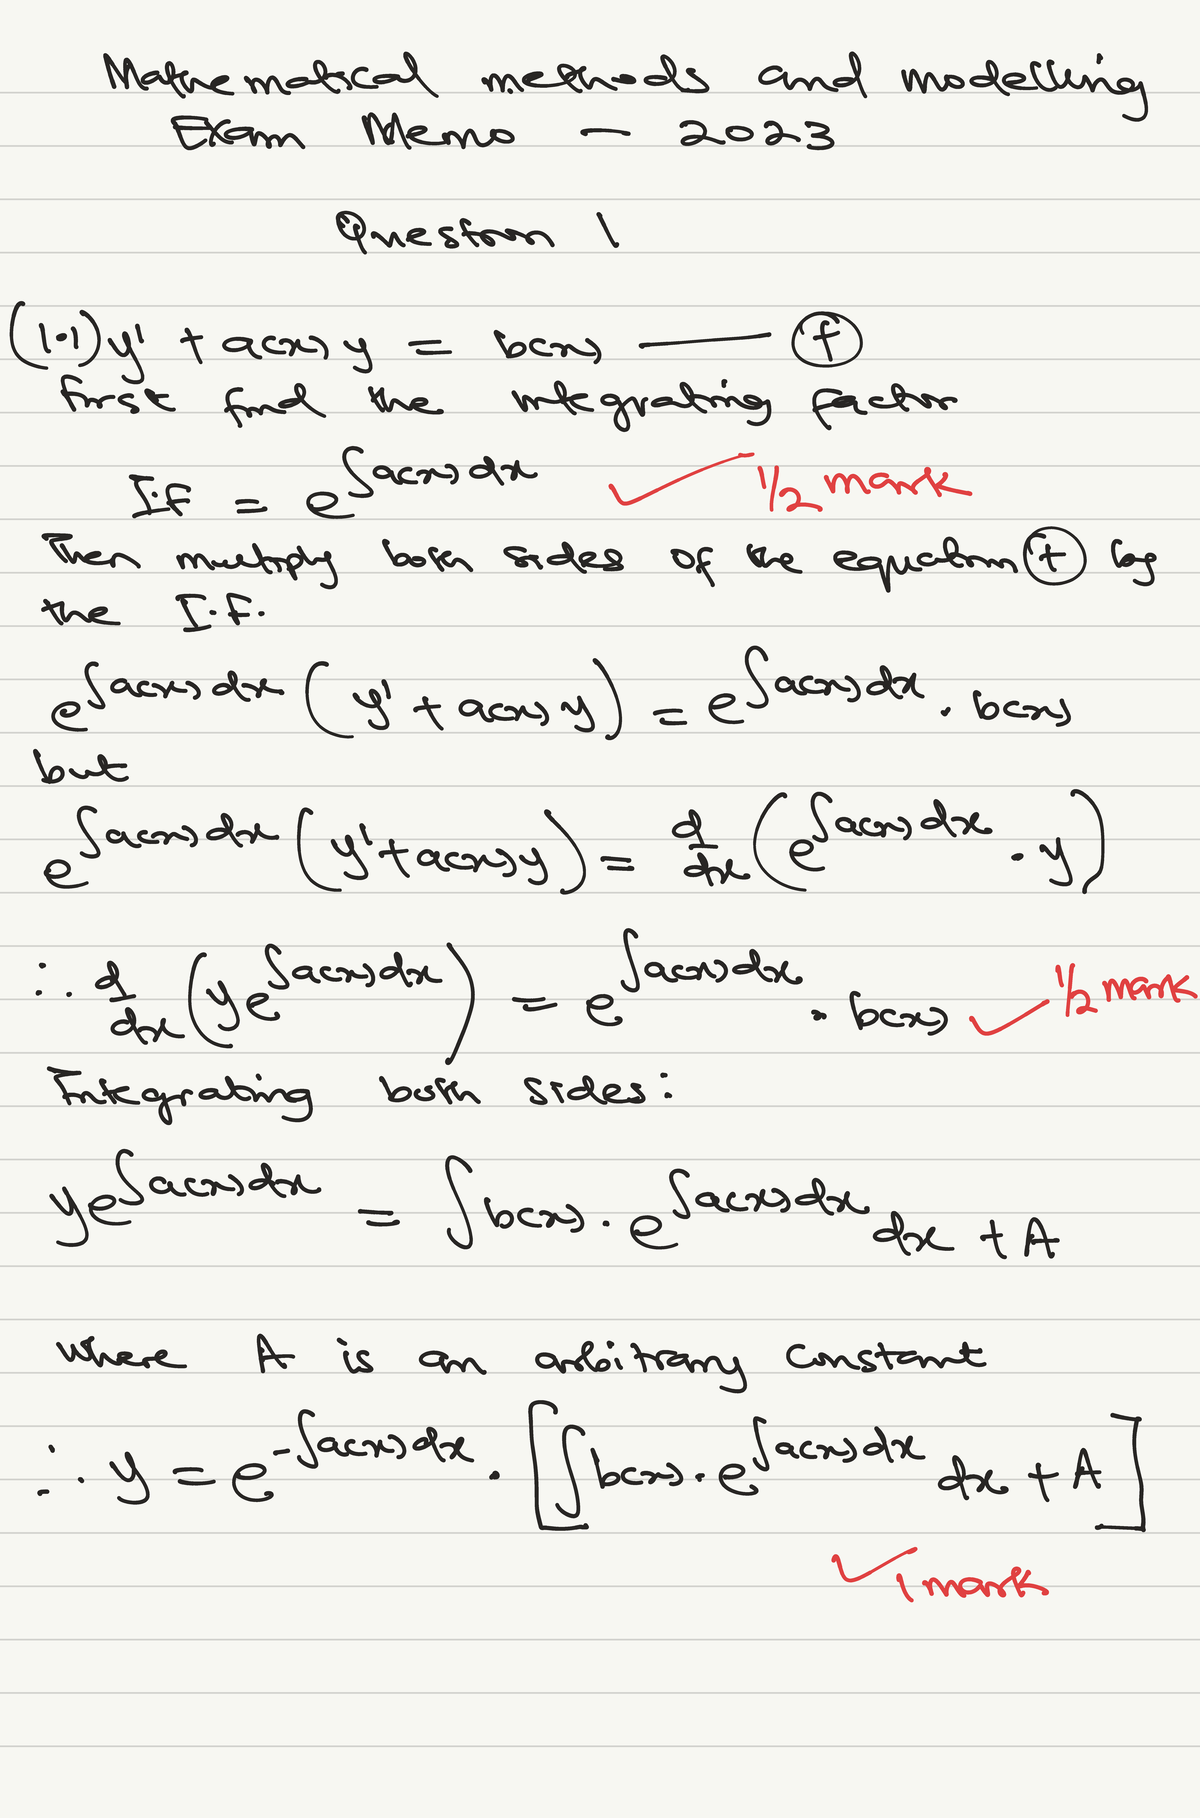 Mathematical methods and modelling
Exam Memo — 2023
Question 1
(1.1) y' + a(x) y = b(x) —— (†)
first find the integrating factor
I.F = e^{∫a(x) dx} ✓ 1/2 mark
Then multiply both sides of the equation (†) by
the I.F.
e^{∫a(x) dx} (y' + a(x) y) = e^{∫a(x) dx} · b(x)
but
e^{∫a(x) dx} (y' + a(x) y) = d/dx (e^{∫a(x) dx} · y)
∴ d/dx (y e^{∫a(x) dx}) = e^{∫a(x) dx} · b(x) ✓ 1/2 mark
Integrating both sides:
y e^{∫a(x) dx} = ∫ b(x) · e^{∫a(x) dx} dx + A
where A is an arbitrary constant
∴ y = e^{-∫a(x) dx} · [∫ b(x) · e^{∫a(x) dx} dx + A]
✓ 1 mark